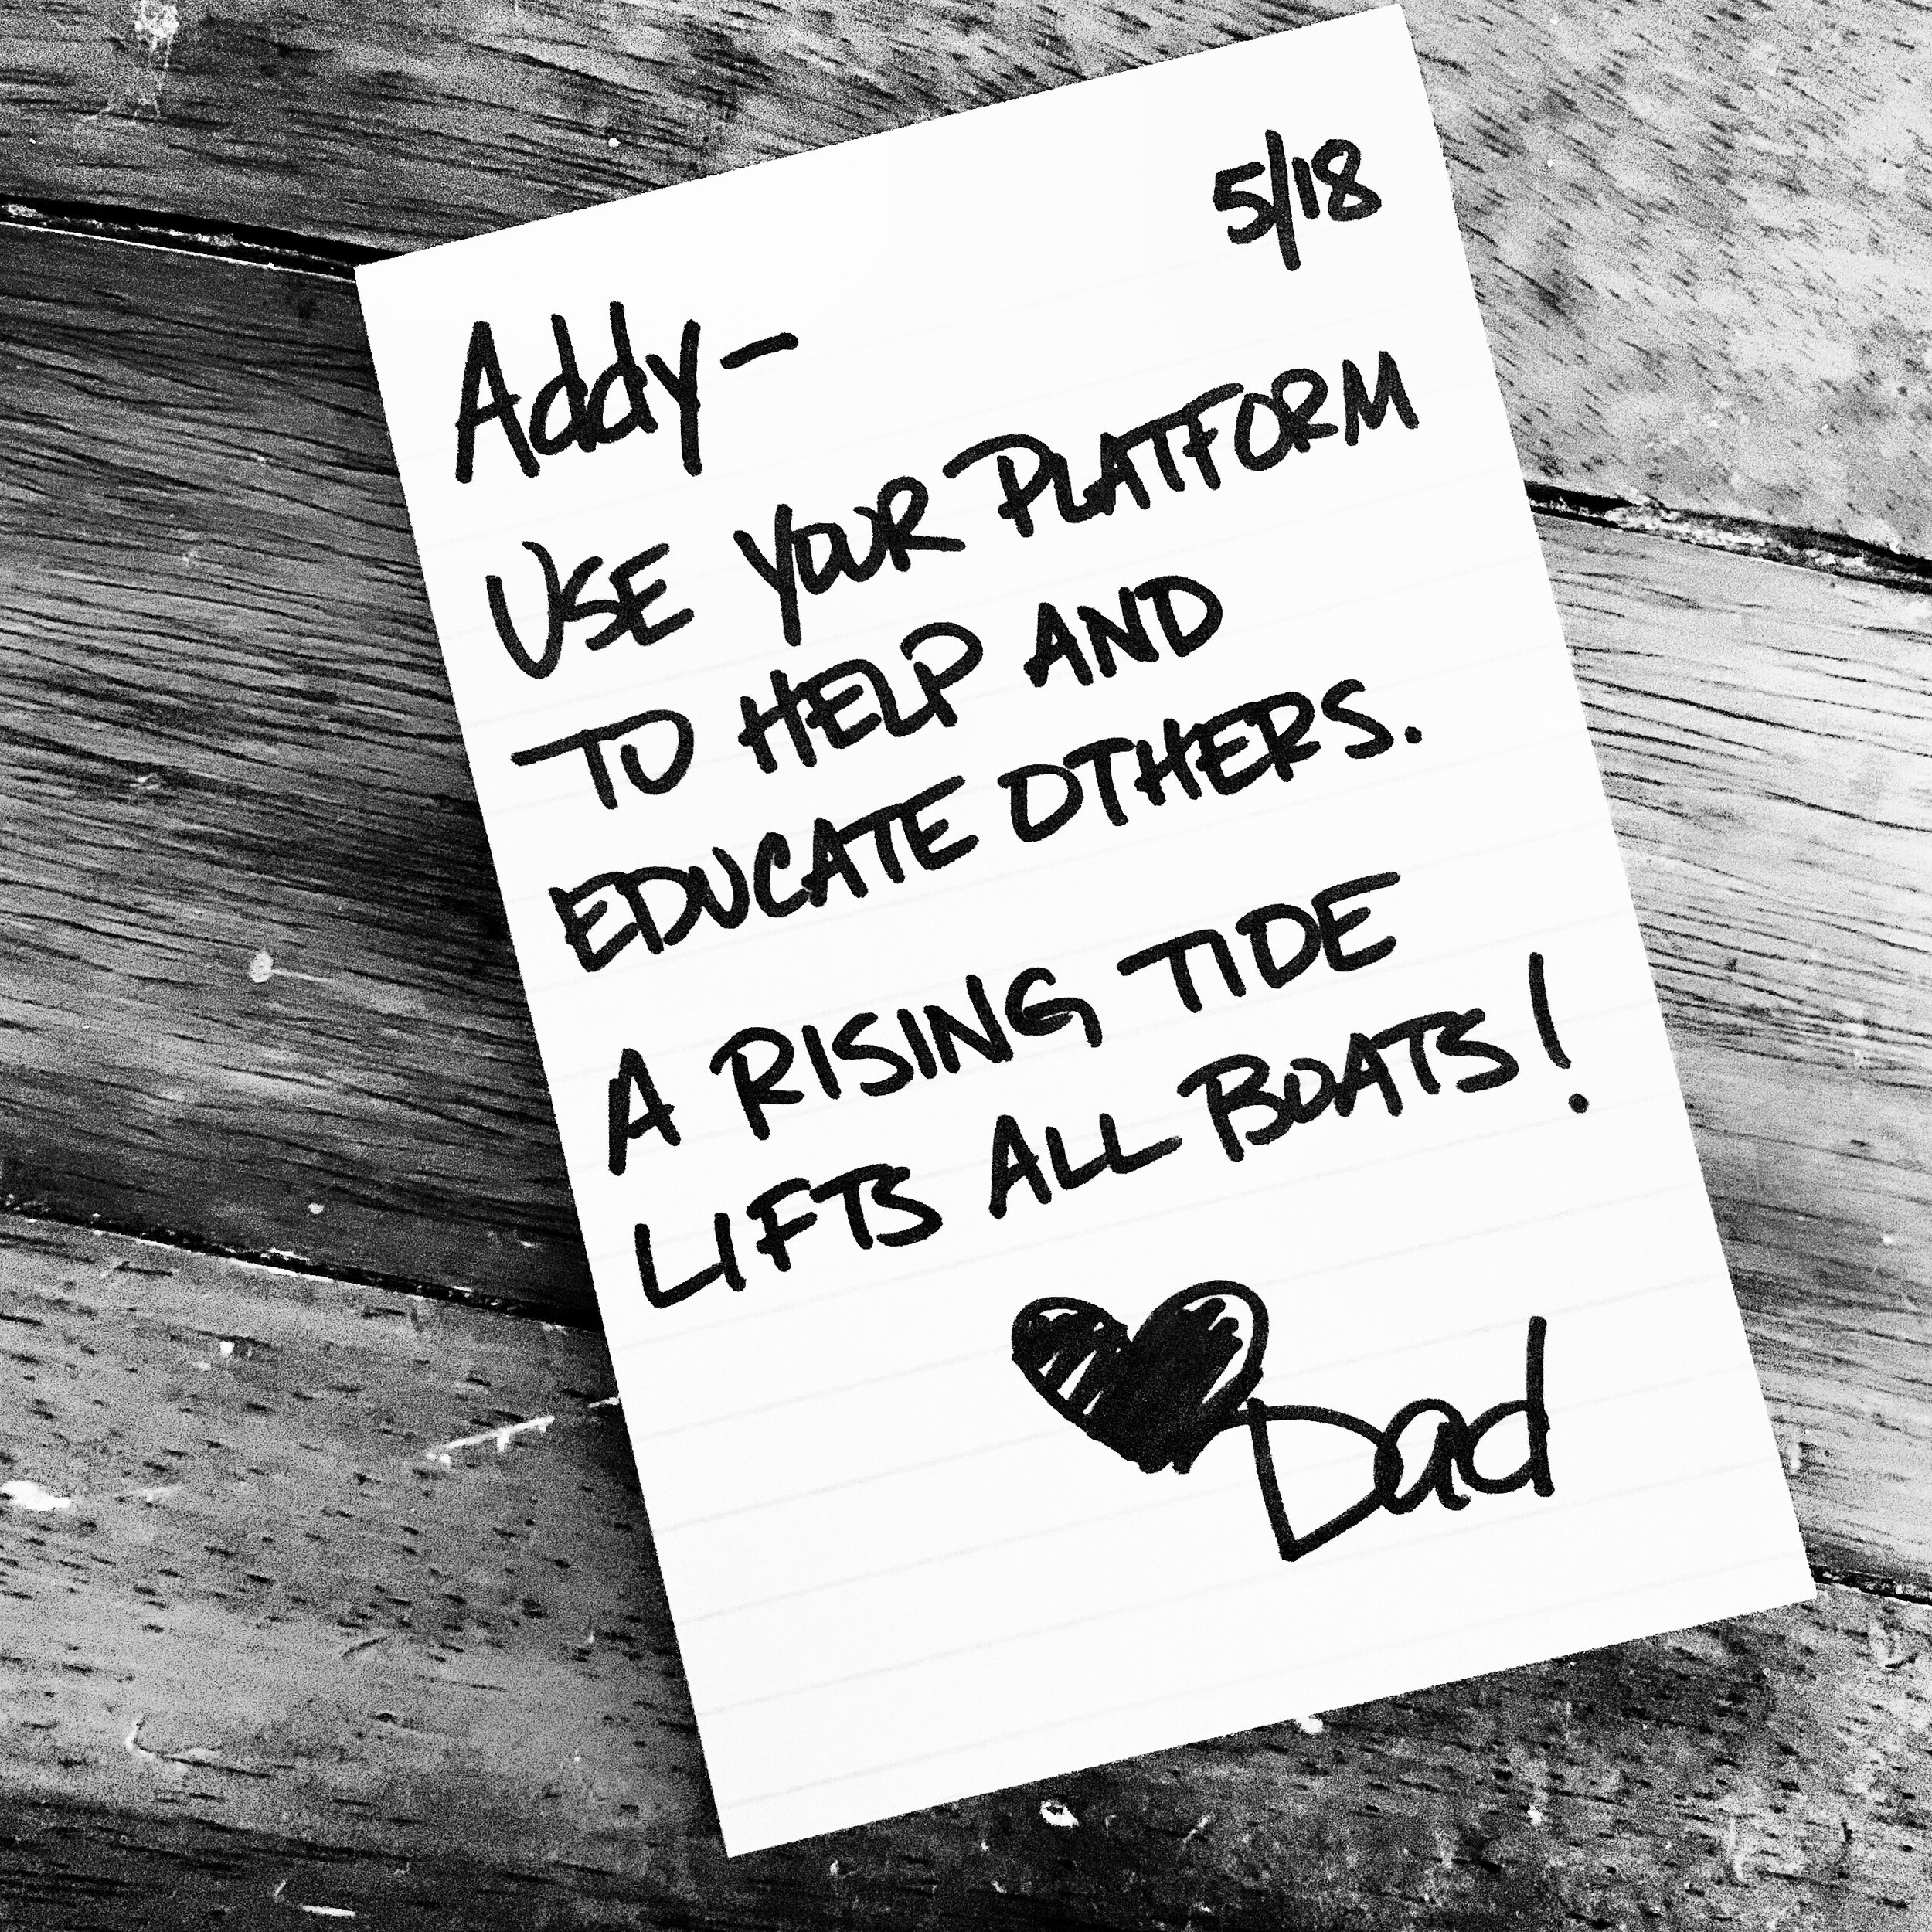 5/18
Addy-
USE YOUR PLATFORM
TO HELP AND
EDUCATE OTHERS.
A RISING TIDE
LIFTS ALL BOATS!
Dad